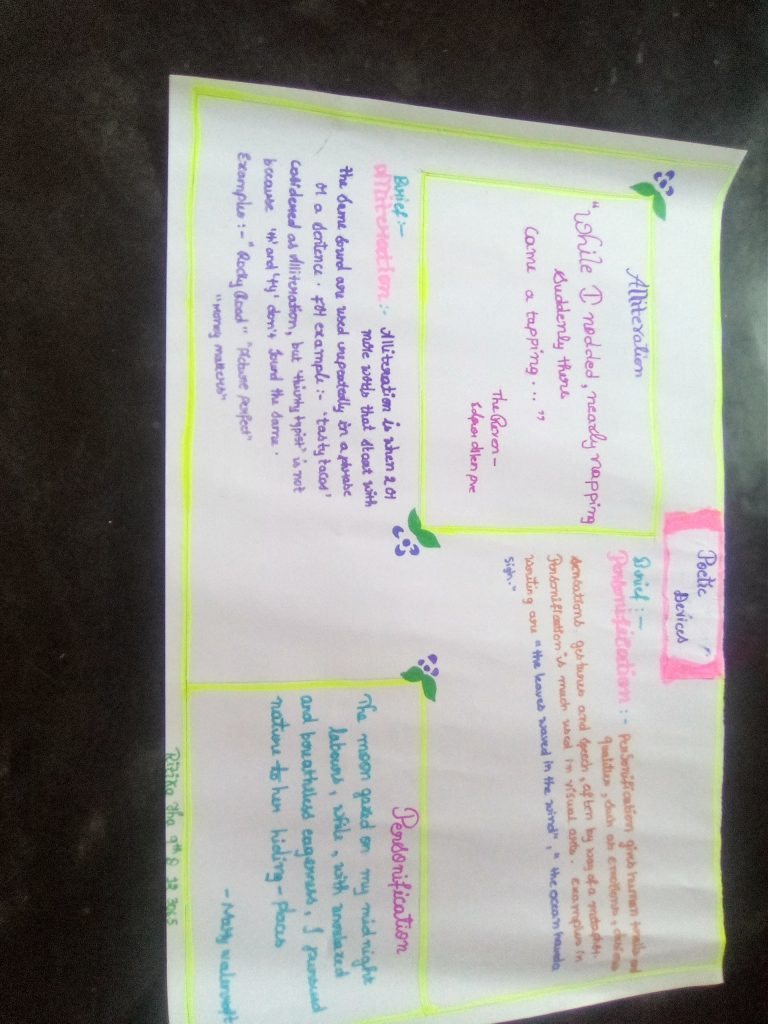 Poetic
Devices
Alliteration
"While I nodded, nearly napping
suddenly there
came a tapping..."
The Raven -
Brief:-
Personification :- Personification gives human traits and
qualities, such as emotions, desires
sensations gestures and speech, often by way of a metaphor.
Personification is much used in visual arts. examples in
writing are "the leaves waved in the wind", "the ocean
sigh."
Brief:-
Alliteration:- Alliteration is when 2 or
more words that start with
the same sound are used repeatedly in a phrase
or a sentence. for example:- 'tasty tacos'
considered as alliteration, but 'thirsty typist' is not
because 'th' and 'ty' don't sound the same.
Examples:- "Rocky Road" "Picture perfect"
"Money matters"
Personification
The moon gazed on my midnight
labours, while, with unrelaxed
and breathless eagerness, I pursued
nature to her hiding-places
- Mary